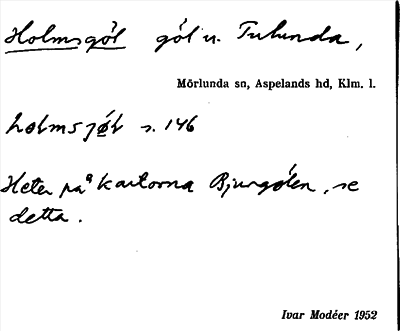 Holmsgöl göl u. Tulunda,
Mörlunda sn, Aspelands hd, Klm. l.
s. 146
Heter på kartorna Bjurgölen, se
detta.
Ivar Modéer 1952